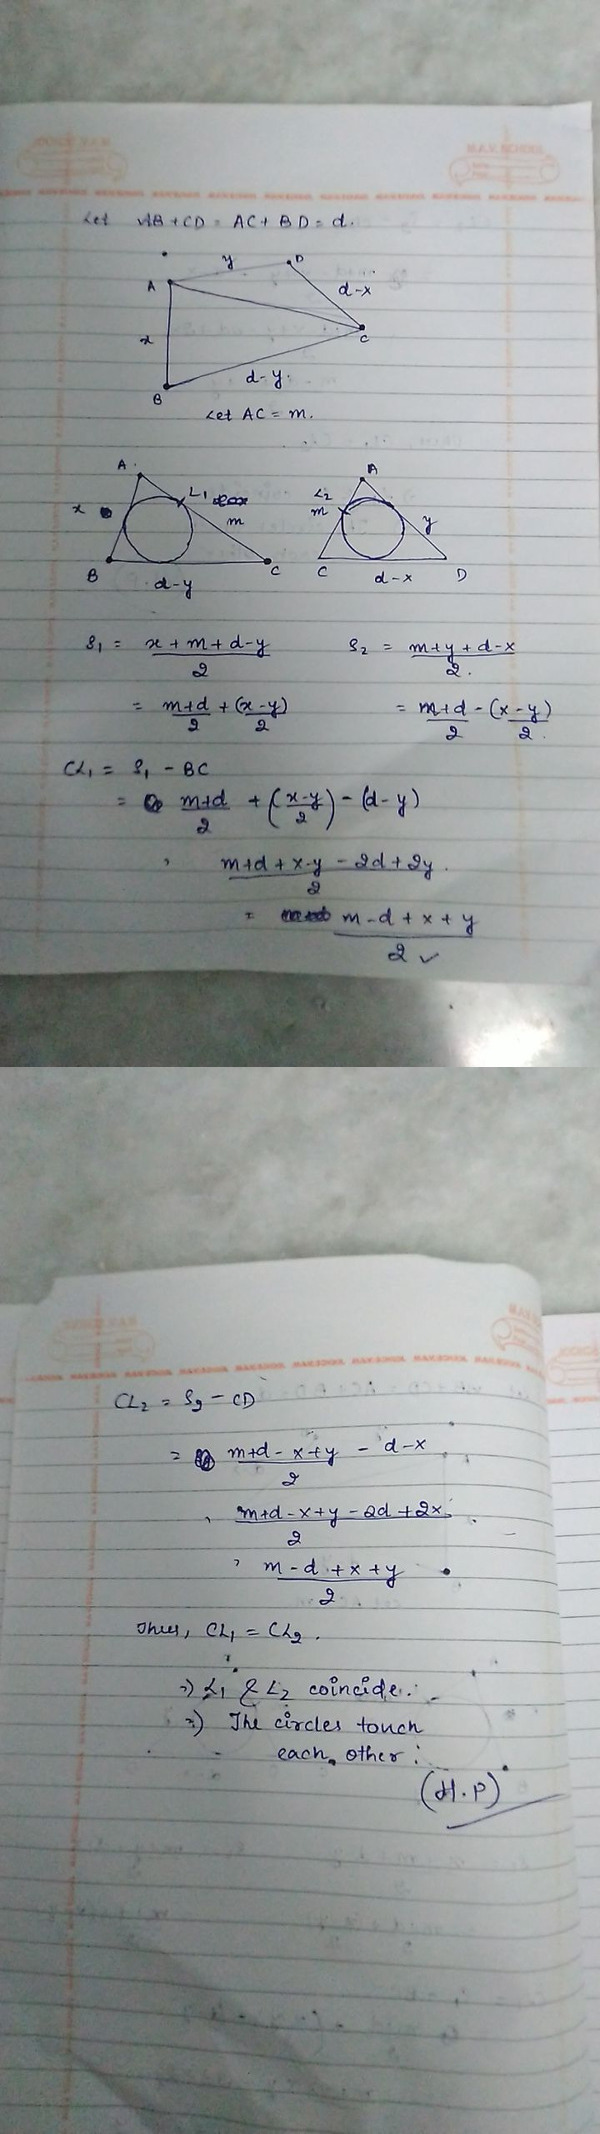 Let AB + CD = AC + BD = d.
y
D
A
d-x
x
C
d-y.
B
Let AC = m.
A.
L1
x
m
B
d-y
C
A
L2
m
y
C
d-x
D
S1 = x+m+d-y / 2
S2 = m+y+d-x / 2.
= m+d / 2 + (x-y) / 2
= m+d / 2 - (x-y) / 2.
CL1 = S1 - BC
= m+d / 2 + (x-y / 2) - (d-y)
, m+d+x-y - 2d+2y. / 2
= m-d+x+y / 2 ✓
CL2 = S2 - CD
= m+d-x+y / 2 - d-x
, m+d-x+y-2d+2x. / 2
, m-d+x+y / 2
Thus, CL1 = CL2.
⇒) L1 & L2 coincide.
⇒) The circles touch
each other.
(H.P)